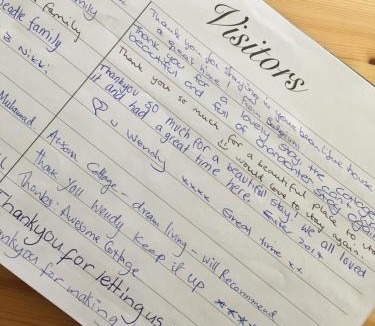 Visitors
family
family
eedle family
& Nikki
Muhammad.
Thank you for staying in your beautiful house
a great time! From Belgium
Thank you for a lovely stay, the cottage
beautiful and full of
Thank you so much for a beautiful place to
would love to stay again.
Thankyou so much for a beautiful stay! We all loved
it and had a great time here.
♡ u Wendy xxxx Great time xx
Cottage - dream living - will Recommend
thank you Wendy keep it up ****
Thanks. Awesome Cottage
Thankyou for letting us
ankyou for making